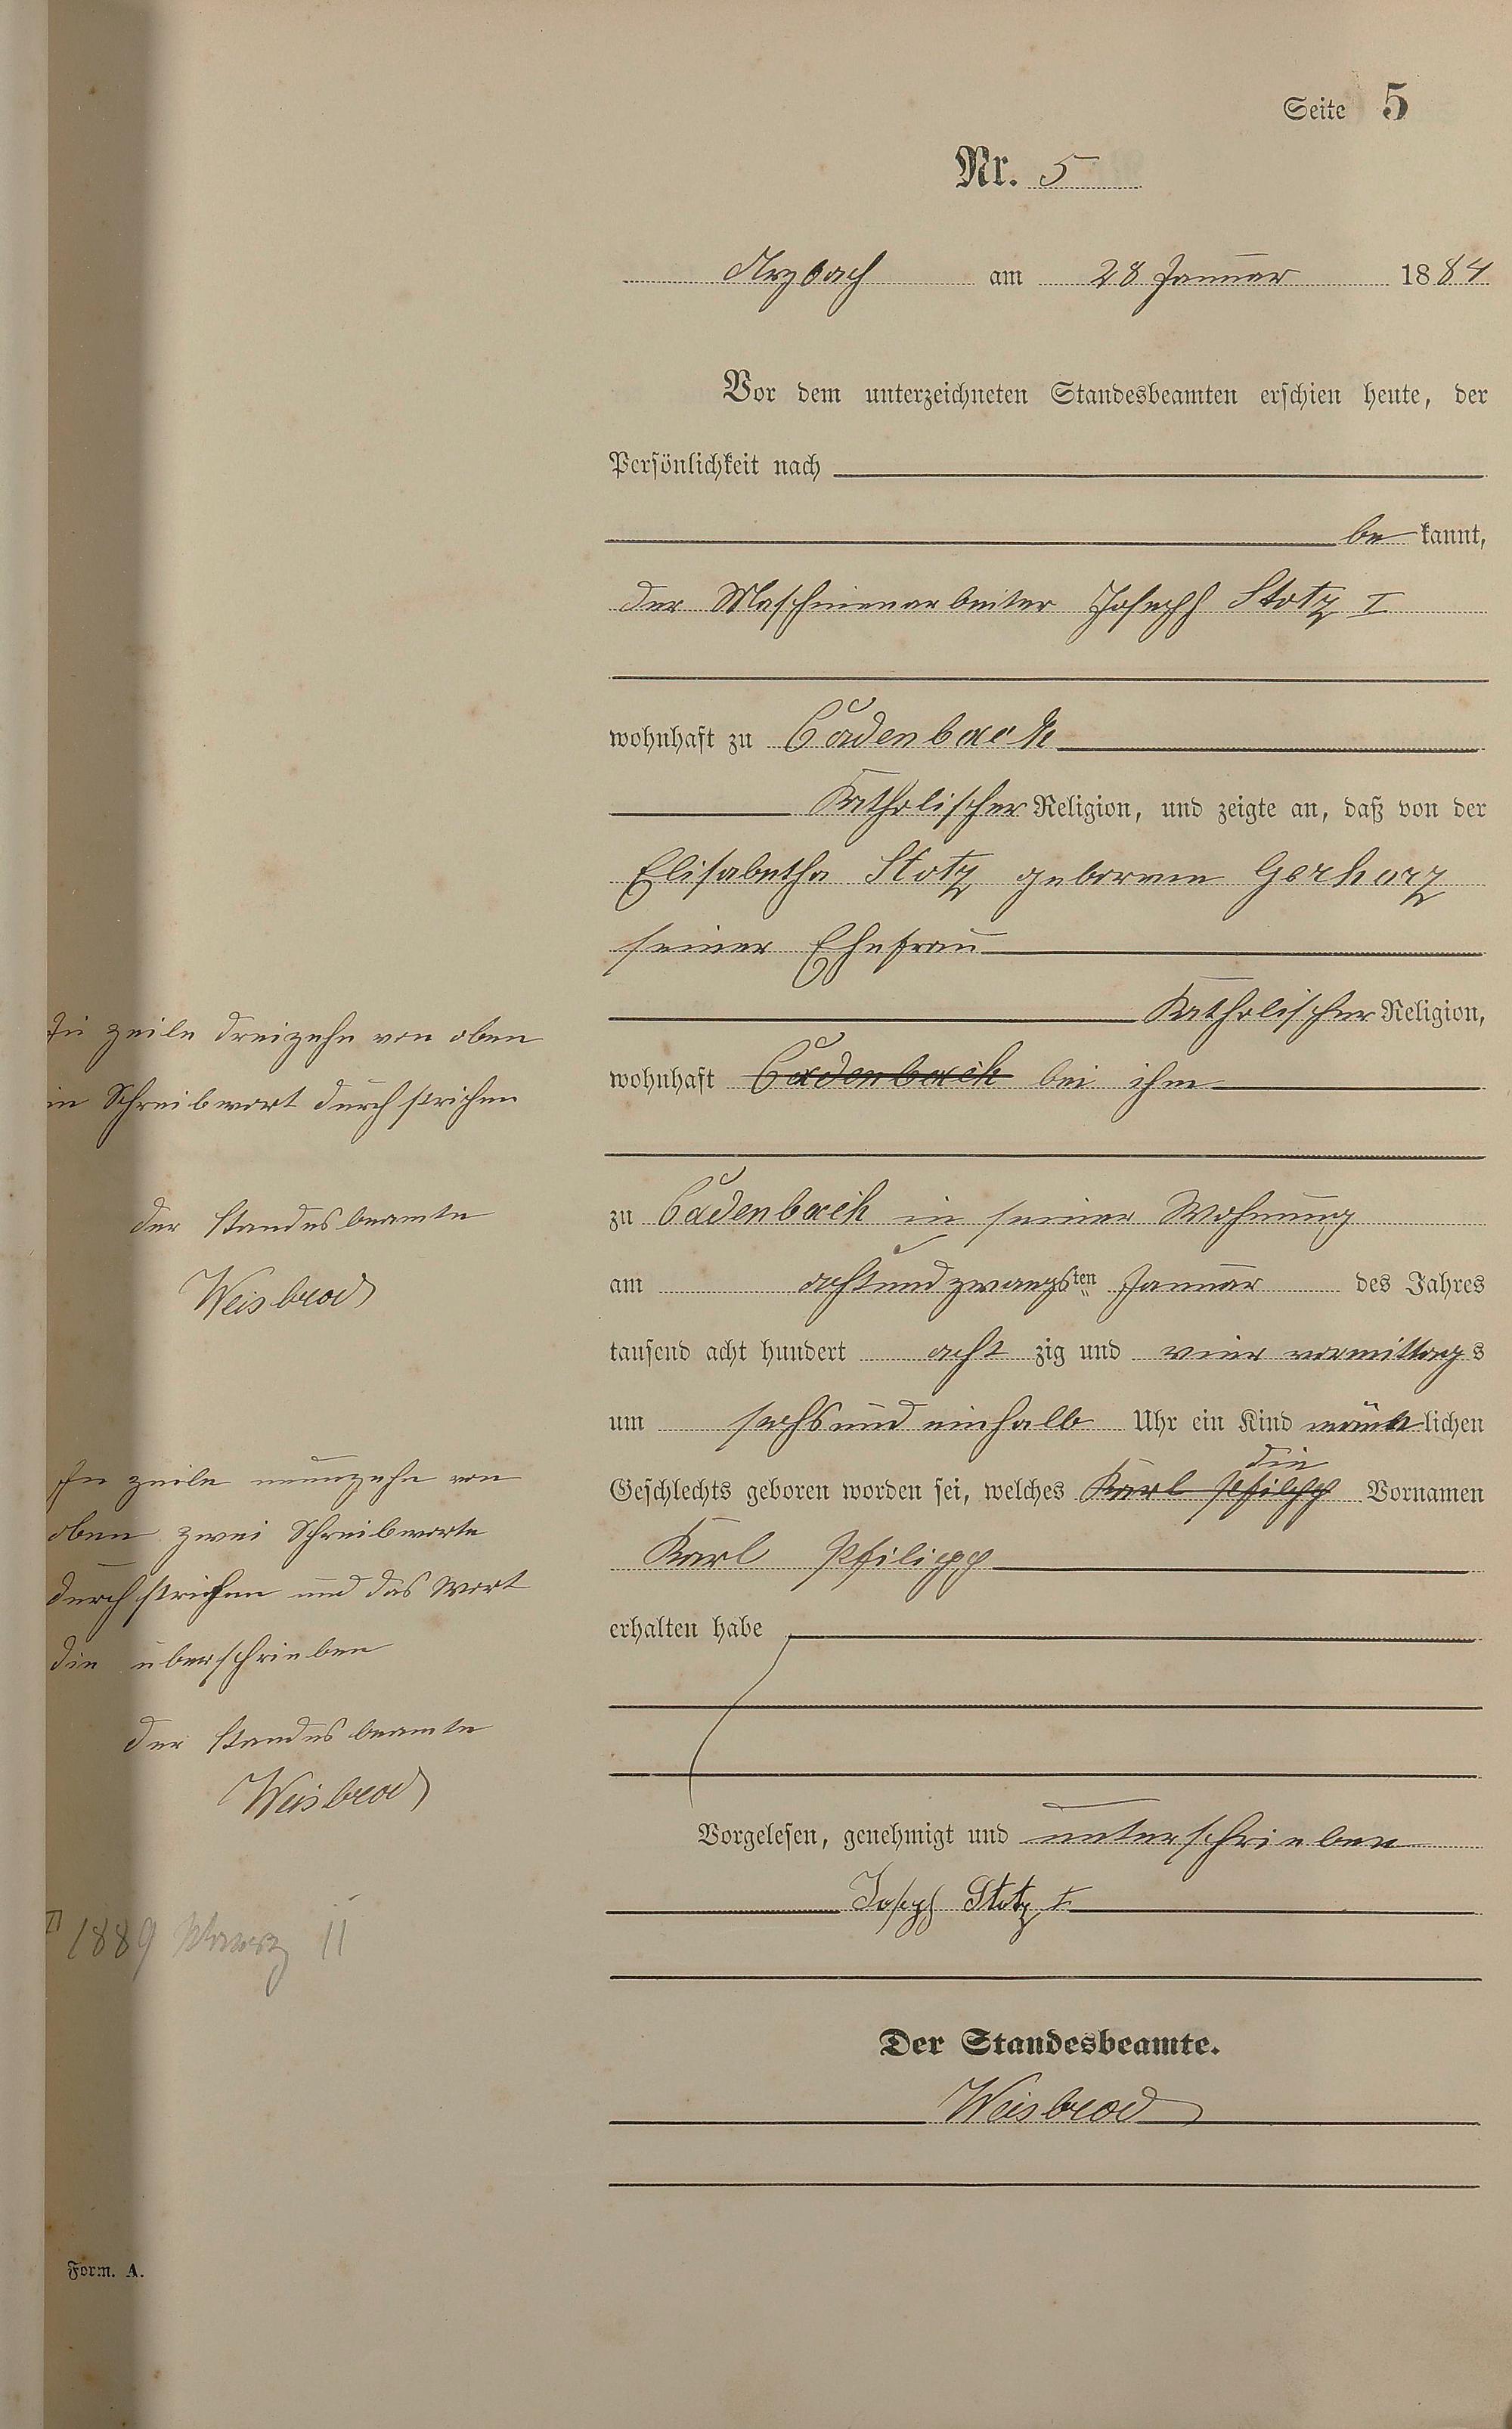 Seite 5
Nr. 5
Arzbach am 28 Januar 1884
Vor dem unterzeichneten Standesbeamten erschien heute, der
Persönlichkeit nach
be kannt,
der Maschinenarbeiter Joseph Stotz I
wohnhaft zu Cadenbach
Katholischer Religion, und zeigte an, daß von der
Elisabetha Stotz geborenen Gerharz
seiner Ehefrau
Katholischer Religion,
wohnhaft Cadenbach bei ihm
zu Cadenbach in seiner Wohnung
am achtundzwanzigsten Januar des Jahres
tausend acht hundert acht zig und vier vormittags
um sechs und einhalb Uhr ein Kind männlichen
die
Geschlechts geboren worden sei, welches Karl Philipp Vornamen
Karl Philipp
erhalten habe
Vorgelesen, genehmigt und unterschrieben
Joseph Stotz I
Der Standesbeamte.
Weisbrod
In zeile dreizehn von oben
ein Schreibwort durchstrichen
der Standesbeamte
Weisbrod
In zeile neunzehn von
oben zwei Schreibworte
durchstrichen und das Wort
die überschrieben
der Standesbeamte
Weisbrod
1889 11
Form. A.